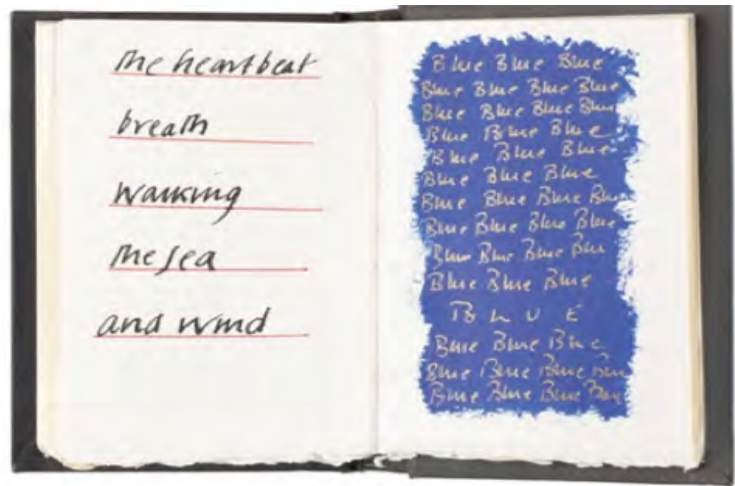 the heartbeat
breath
walking
the sea
and wind
Blue Blue Blue
Blue Blue Blue Blue
Blue Blue Blue Blue
Blue Blue Blue
Blue Blue Blue
Blue Blue Blue
Blue Blue Blue Blue
Blue Blue Blue Blue
Blue Blue Blue Blue
Blue Blue Blue
B L U E
Blue Blue Blue
Blue Blue Blue Blue
Blue Blue Blue Blue